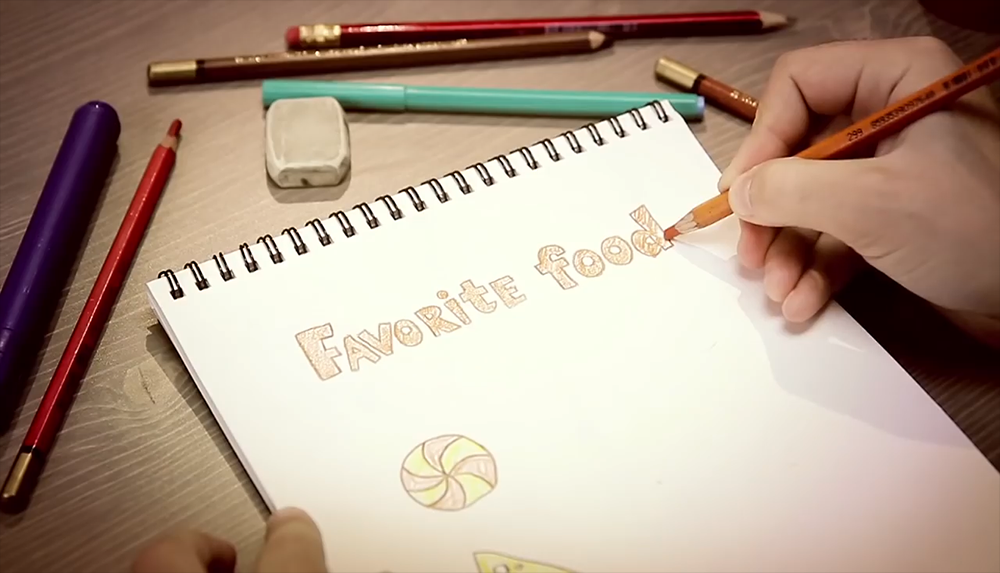 Favorite food
299